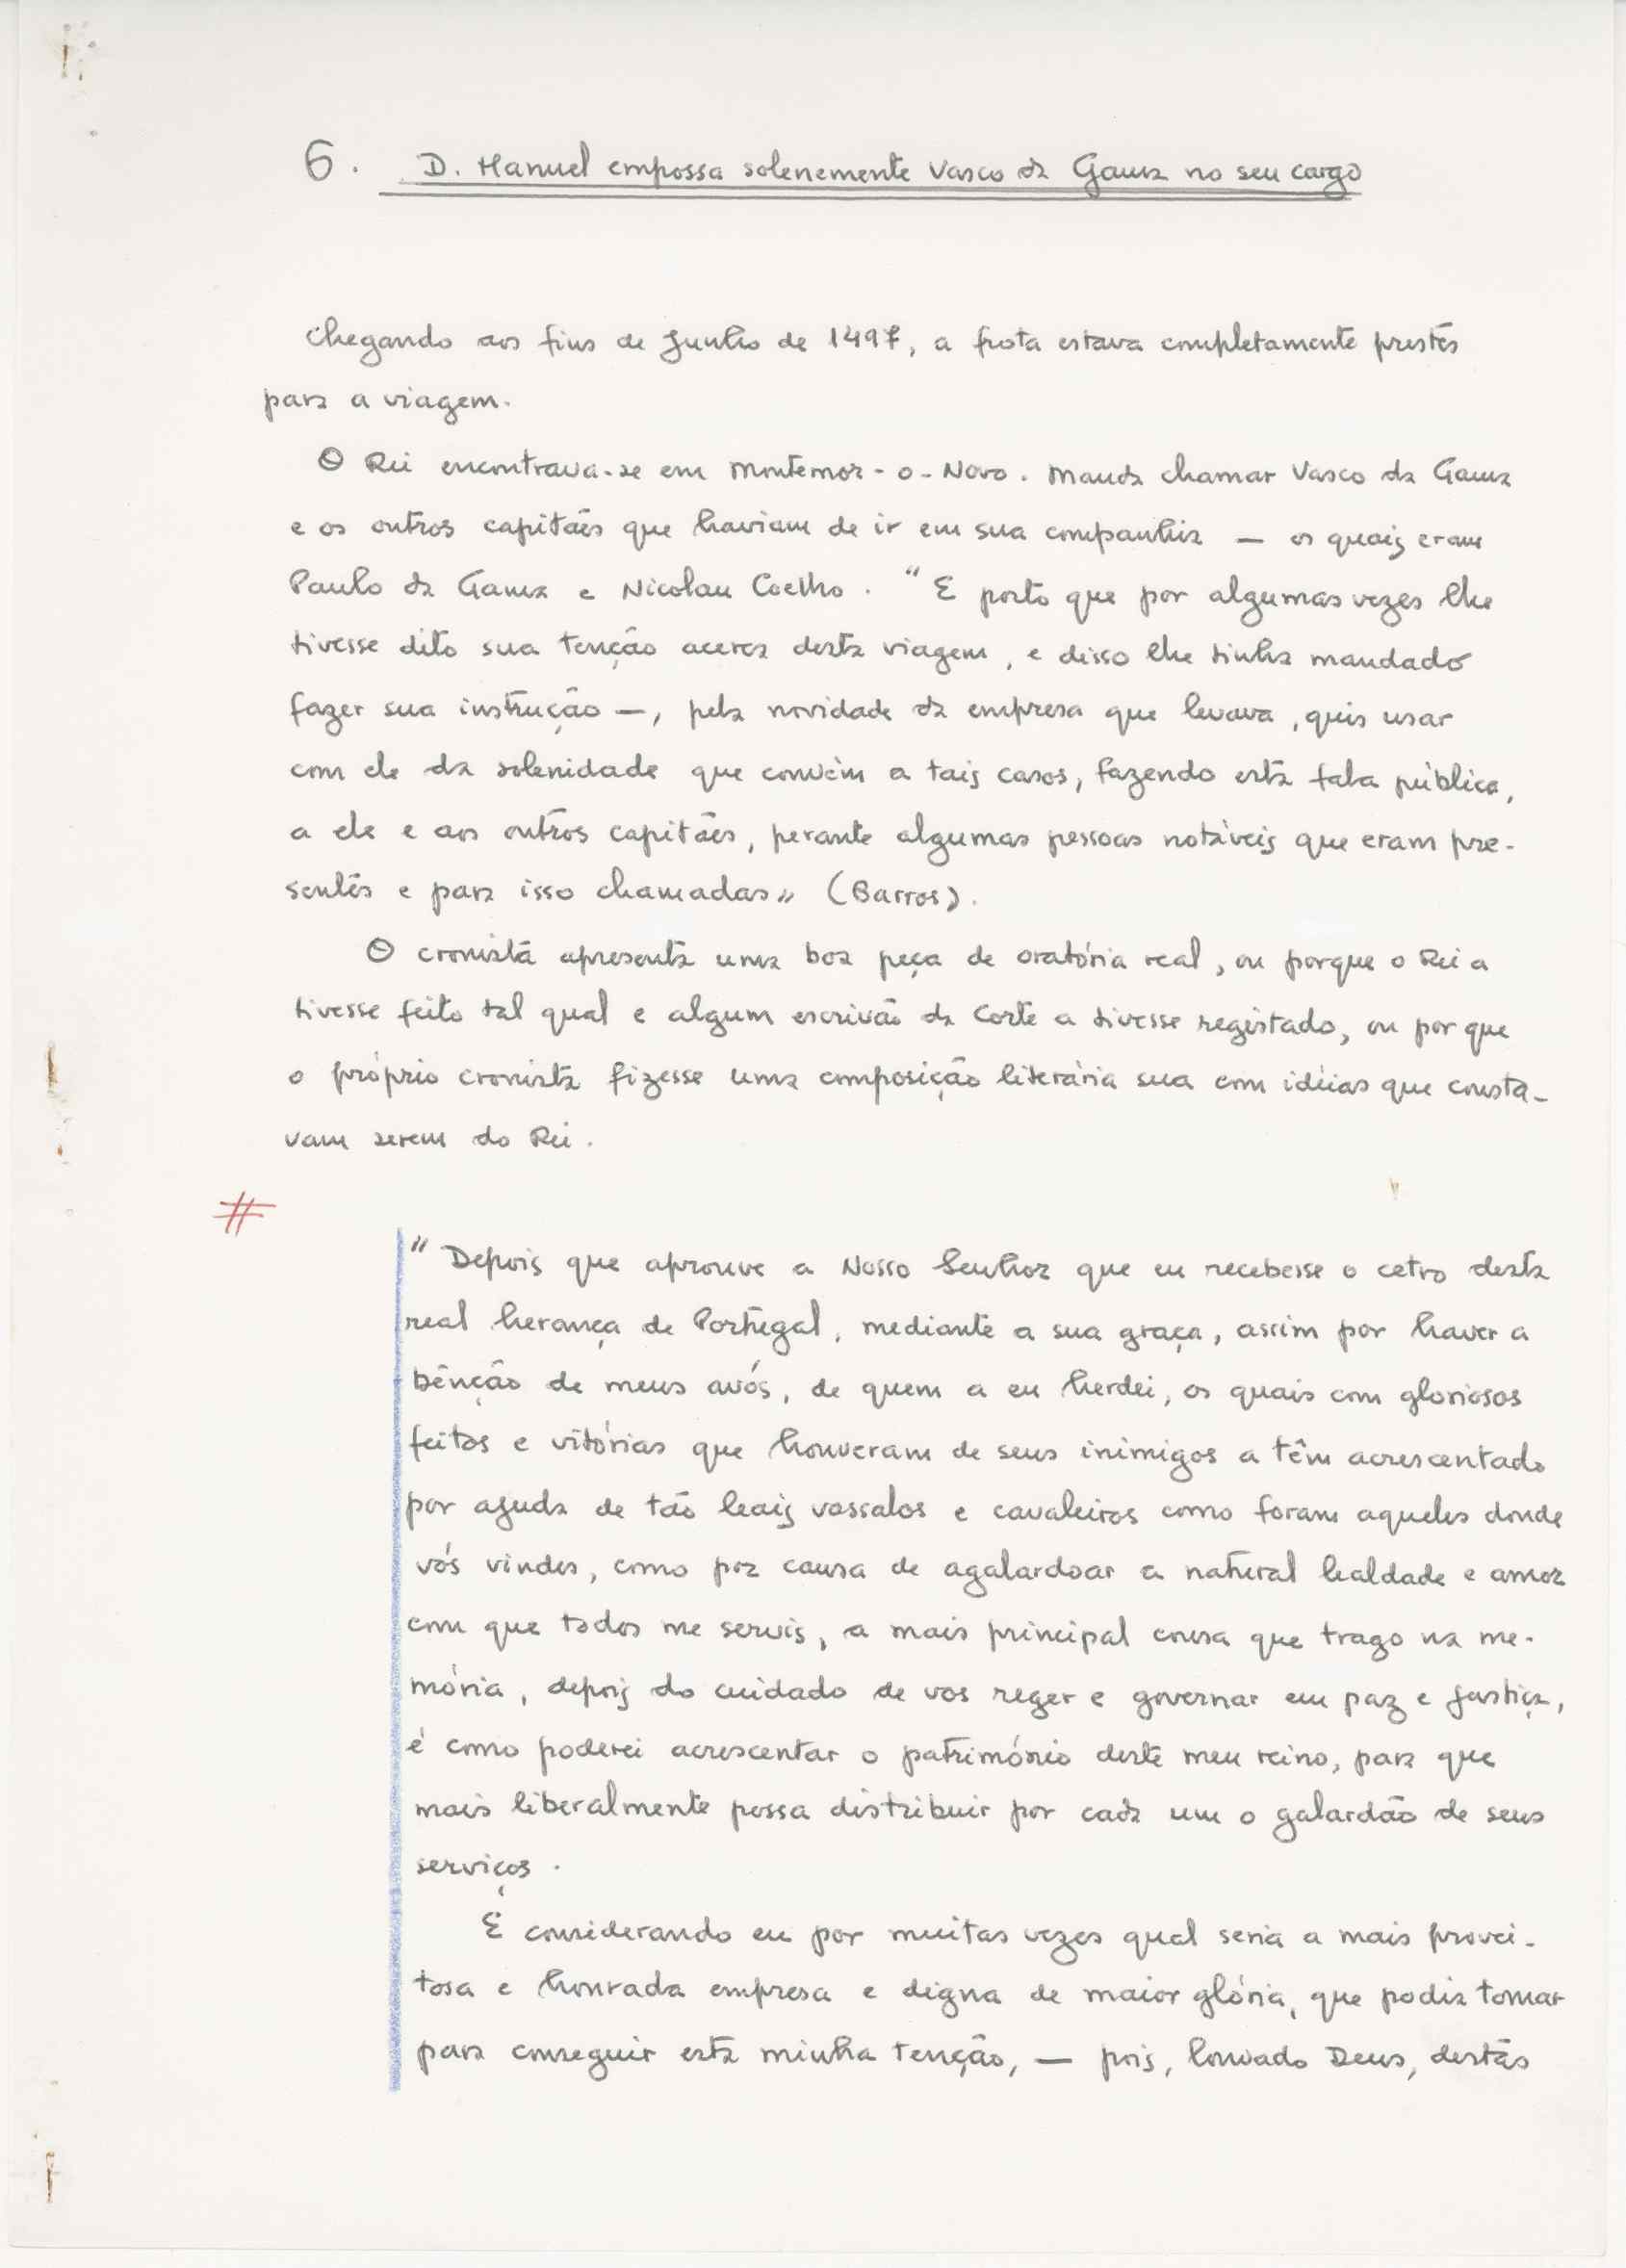 6. D. Manuel empossa solenemente Vasco da Gama no seu cargo
Chegando aos fins de Junho de 1497, a frota estava completamente prestes
para a viagem.
O Rei encontrava-se em Montemor-o-Novo. Manda chamar Vasco da Gama
e os outros capitães que haviam de ir em sua companhia — os quais eram
Paulo da Gama e Nicolau Coelho. "E posto que por algumas vezes lhe
tivesse dito sua tenção acerca desta viagem, e disso lhe tinha mandado
fazer sua instrução —, pela novidade da empresa que levava, quis usar
com ele da solenidade que convém a tais casos, fazendo esta fala pública,
a ele e aos outros capitães, perante algumas pessoas notáveis que eram pre-
sentes e para isso chamadas" (Barros).
O cronista apresenta uma boa peça de oratória real, ou porque o Rei a
tivesse feito tal qual e algum escrivão da Corte a tivesse registado, ou por que
o próprio cronista fizesse uma composição literária sua com idéias que consta-
vam serem do Rei.
#
"Depois que aprouve a Nosso Senhor que eu recebesse o cetro desta
real herança de Portugal, mediante a sua graça, assim por haver a
bênção de meus avós, de quem a eu herdei, os quais com gloriosos
feitos e vitórias que houveram de seus inimigos a têm acrescentado
por ajuda de tão leais vassalos e cavaleiros como foram aqueles donde
vós vindes, como por causa de agalardoar a natural lealdade e amor
com que todos me servis, a mais principal cousa que trago na me-
mória, depois do cuidado de vos reger e governar em paz e justiça,
é como poderei acrescentar o património deste meu reino, para que
mais liberalmente possa distribuir por cada um o galardão de seus
serviços.
E considerando eu por muitas vezes qual seria a mais provei-
tosa e honrada empresa e digna de maior glória, que podia tomar
para conseguir esta minha tenção, — pois, louvado Deus, destas